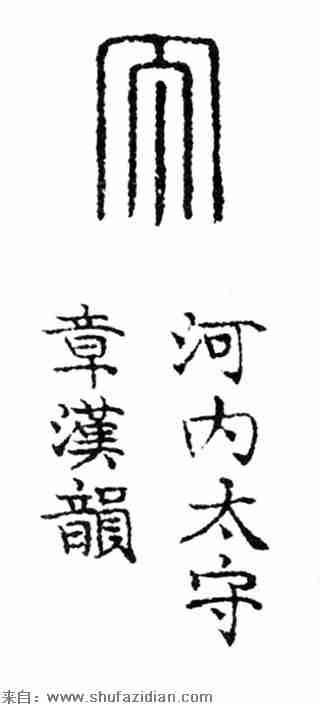 河内太守
章漢韻
来自：www.shufazidian.com